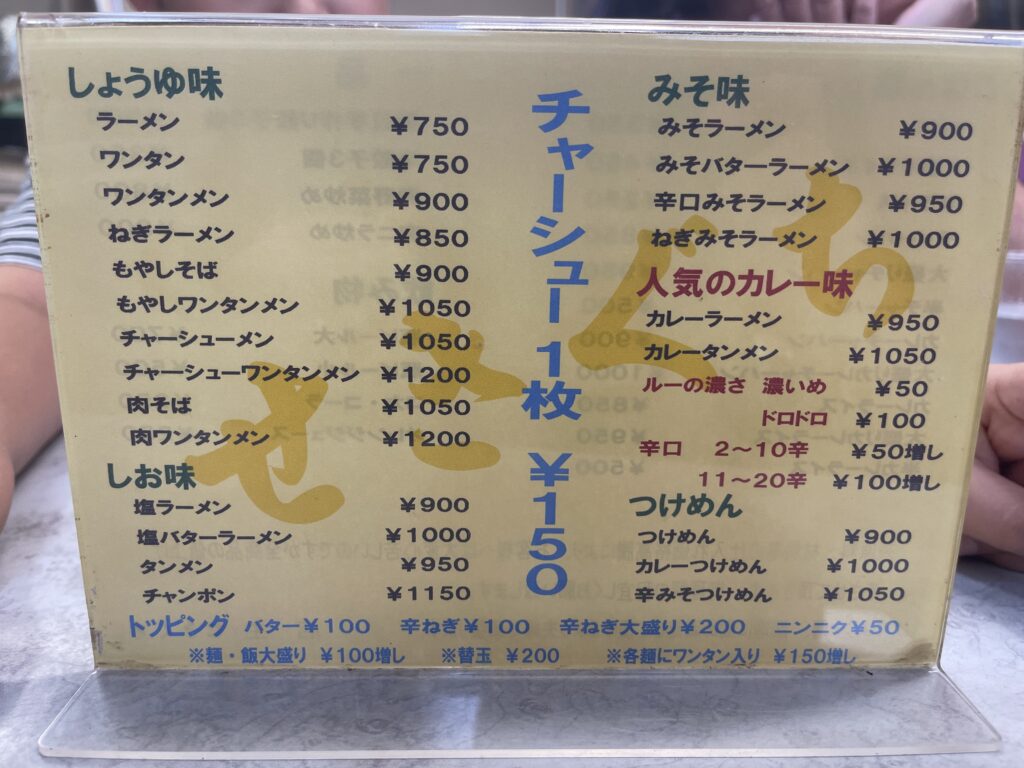 しょうゆ味
ラーメン ¥750
ワンタン ¥750
ワンタンメン ¥900
ねぎラーメン ¥850
もやしそば ¥900
もやしワンタンメン ¥1050
チャーシューメン ¥1050
チャーシューワンタンメン ¥1200
肉そば ¥1050
肉ワンタンメン ¥1200
しお味
塩ラーメン ¥900
塩バターラーメン ¥1000
タンメン ¥950
チャンポン ¥1150
チャーシュー1枚 ¥150
みそ味
みそラーメン ¥900
みそバターラーメン ¥1000
辛口みそラーメン ¥950
ねぎみそラーメン ¥1000
人気のカレー味
カレーラーメン ¥950
カレータンメン ¥1050
ルーの濃さ 濃いめ ¥50
ドロドロ ¥100
辛口 2～10辛 ¥50増し
11～20辛 ¥100増し
つけめん
つけめん ¥900
カレーつけめん ¥1000
辛みそつけめん ¥1050
トッピング バター¥100 辛ねぎ¥100 辛ねぎ大盛り¥200 ニンニク¥50
※麺・飯大盛り ¥100増し ※替玉 ¥200 ※各麺にワンタン入り ¥150増し
せきぐち